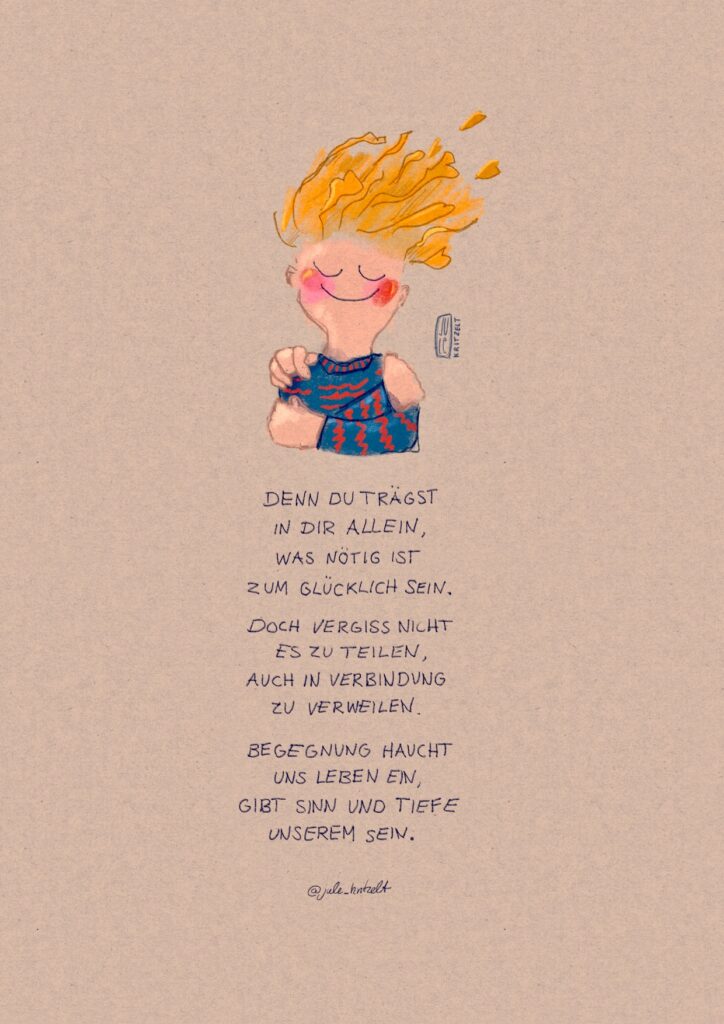 JULE
KRITZELT
DENN DU TRÄGST
IN DIR ALLEIN,
WAS NÖTIG IST
ZUM GLÜCKLICH SEIN.
DOCH VERGISS NICHT
ES ZU TEILEN,
AUCH IN VERBINDUNG
ZU VERWEILEN.
BEGEGNUNG HAUCHT
UNS LEBEN EIN,
GIBT SINN UND TIEFE
UNSEREM SEIN.
@jule_kritzelt